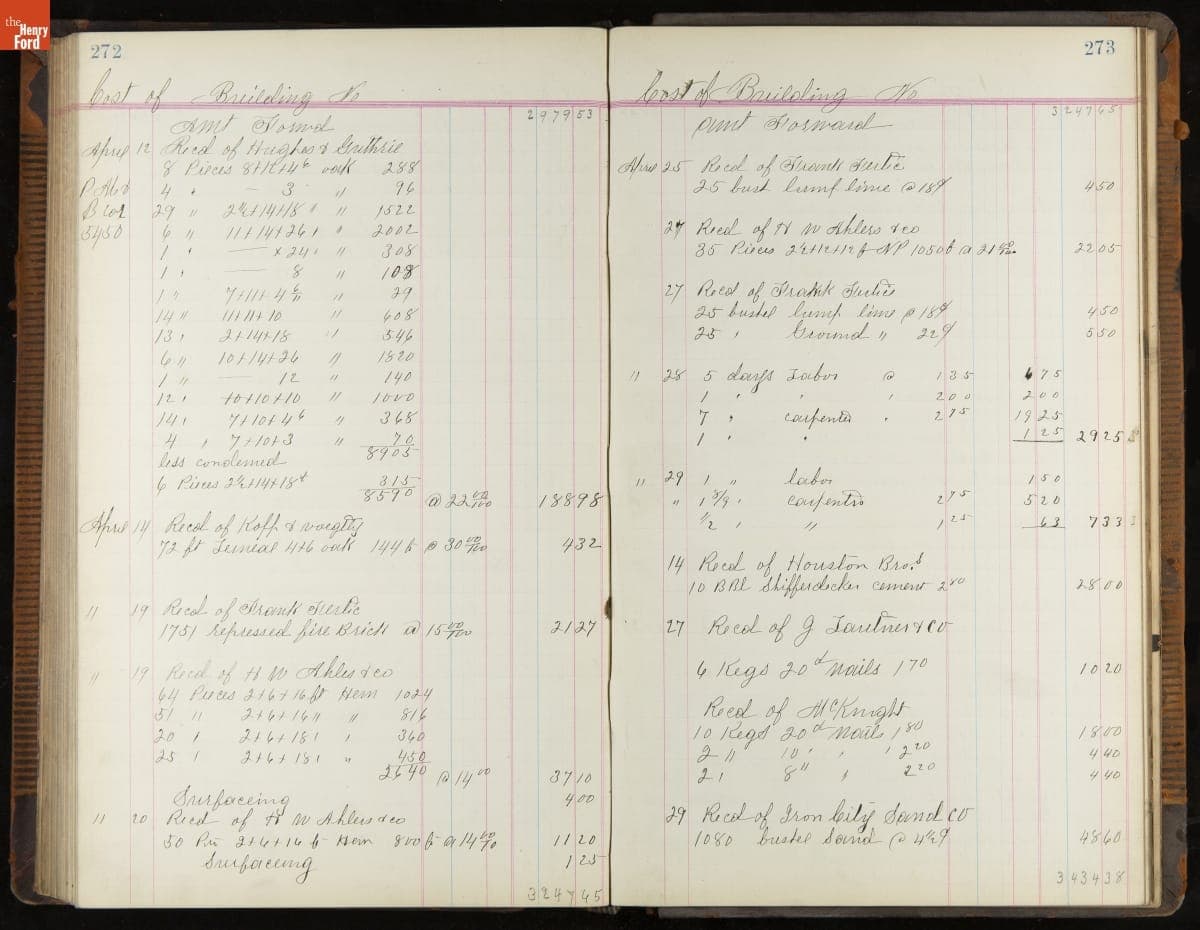 the Henry Ford
272
Cost of Building No
Amt Forwd 297953
April 12 Recd of Hughes & Guthrie
8 Pieces 8+12+4 6 oak 288
4 " — 3 " 96
B 29 " 2½+14+18 " " 1522
5450 6 " 11+14+26 " " 2002
1 " — x 24 " " 308
1 " — 8 " 108
1 " 7+11+4 " 29
14 " 11+11+10 " 608
13 " 2+14+18 " 546
6 " 10+14+26 " 1820
1 " — 12 " 140
12 " 10+10+10 " 1000
14 " 7+10+4 6 " 368
4 " 7+10+3 " 70
8905
less condemed
6 Pieces 2½+14+18 315
8590 @ 22 00/100 18898
April 14 Recd of Kopp & Voegtly
72 ft 4+6 oak 144 ft @ 30 00/100 432
" 19 Recd of Frank Fertic
1751 repressed fire Brick @ 15 00/100 2127
" 19 Recd of H W Ahlers & co
64 Pieces 2+6+16 ft Hem 1024
51 " 2+6+16 " " 816
20 " 2+6+18 " " 360
25 " 2+6+18 " " 450
2640 @ 14 00 3710
Surfaceing 400
" 20 Recd of H W Ahlers & co
50 Pie 2+6+16 ft Hem 800 ft @ 14 00/100 1120
Surfaceing 125
324765
273
Cost of Building No
324765
Amt Forward
April 25 Recd of Frank Fertic
25 bust lump lime @ 18¢ 450
27 Recd of H W Ahlers & co
35 Pieces 2½+12+12 ft NP 1050 ft @ 21 00/100 2205
27 Recd of Frank Fertic
25 bushel lump lime @ 18¢ 450
25 " Ground " 22¢ 550
" 28 5 days Labor @ 135 675
1 " " " 200 200
7 " carpenter " 275 1925
1 " " 125 2925
" 29 1 " labor 150
" 1 8/9 " carpentrs 275 520
½ " " 125 63 733
14 Recd of Houston Bros
10 BBl Shifferdecker cement 280 2800
27 Recd of G Lautner & co
6 Kegs 20d nails 170 1020
Recd of McKnight
10 Kegs 20d nails 180 1800
2 " 10 " " " 220 440
2 " 8 " " 220 440
29 Recd of Iron City Sand co
1080 bushel Sand @ 4½¢ 4860
343438